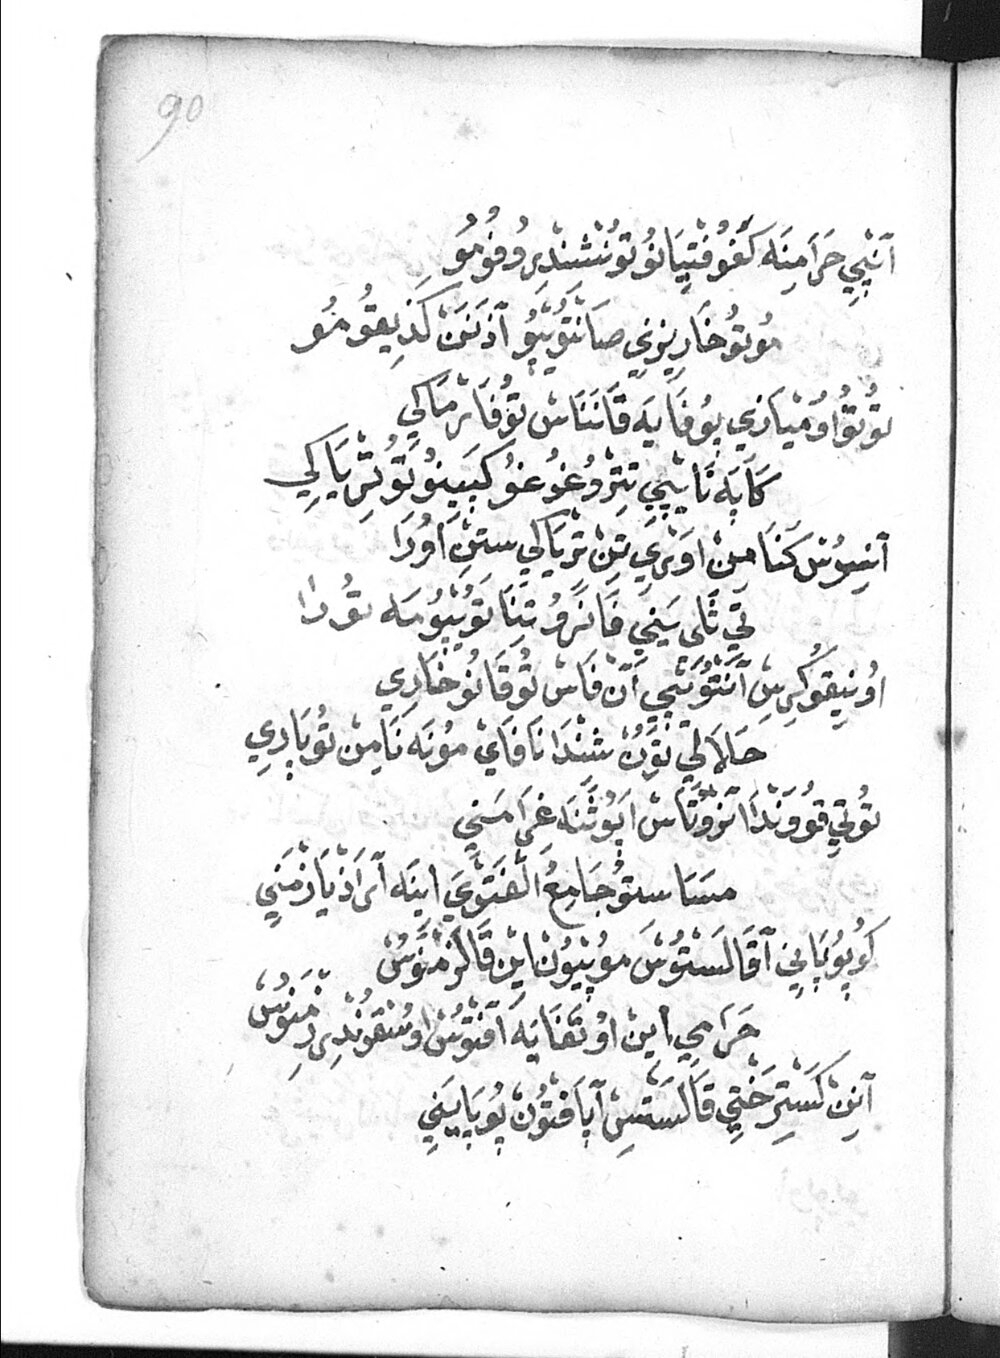 90
آنْپِي حَرَامِنَه كَغُو فْتِيَانُو تُونْشَنْدِرُوفُومُو
مُوتُو خَارِيزِي صَانْتُو يْپُو آذَنَنْ كَذِيقُومُو
تُوتُو اوُمْيَازِي پُوفَايَه قَانَنَاسْ تُوفَارْمَاكِي
كَاپَه تَايْپِي تِتْرُوغُوغُو كَپَيِنُو تُوتِرْيَاكِي
آنِسُوسْ كَنَا مِنْ اوَنْرِي تِنْ تِرْيَاكِي سْتِنْ اَوُرَا
تِي ثَلى يَنِي فَانَرُو تِنَا تُو يْپُومَه تُورَا
اوُنِيقُوكِرِسْ آنْتُونْپِي آنْ فَاسْ تُوقَانُوخَارِي
حَلَالِي تُونْ شَنْدَا نَافَايْ مُونَه نَامِنْ تُوپَارِي
تُوتِي قُووَنْدَا تَرُونَاسْ اَپُوثَنَه غَرَامَنِي
مَسَا سْتُو جَامِعُ الْفَتْوَي اينَه آرَاذْيَازْمَنِي
كُوپُوپَايِنِي آقَالَسْتُوسَ مُوپْيُونْ اينْ قَالَزْمَنُوسْ
حَرَامِي اينْ اوُتَفَايَه آفْتُوسْ اوُسَنْقُونْدِرِزْمَنُوسْ
آنِنْ كَسْتِرَخْتِي قَالَسَتِسْ آپَافْتُونْ پُوپَايَنِي